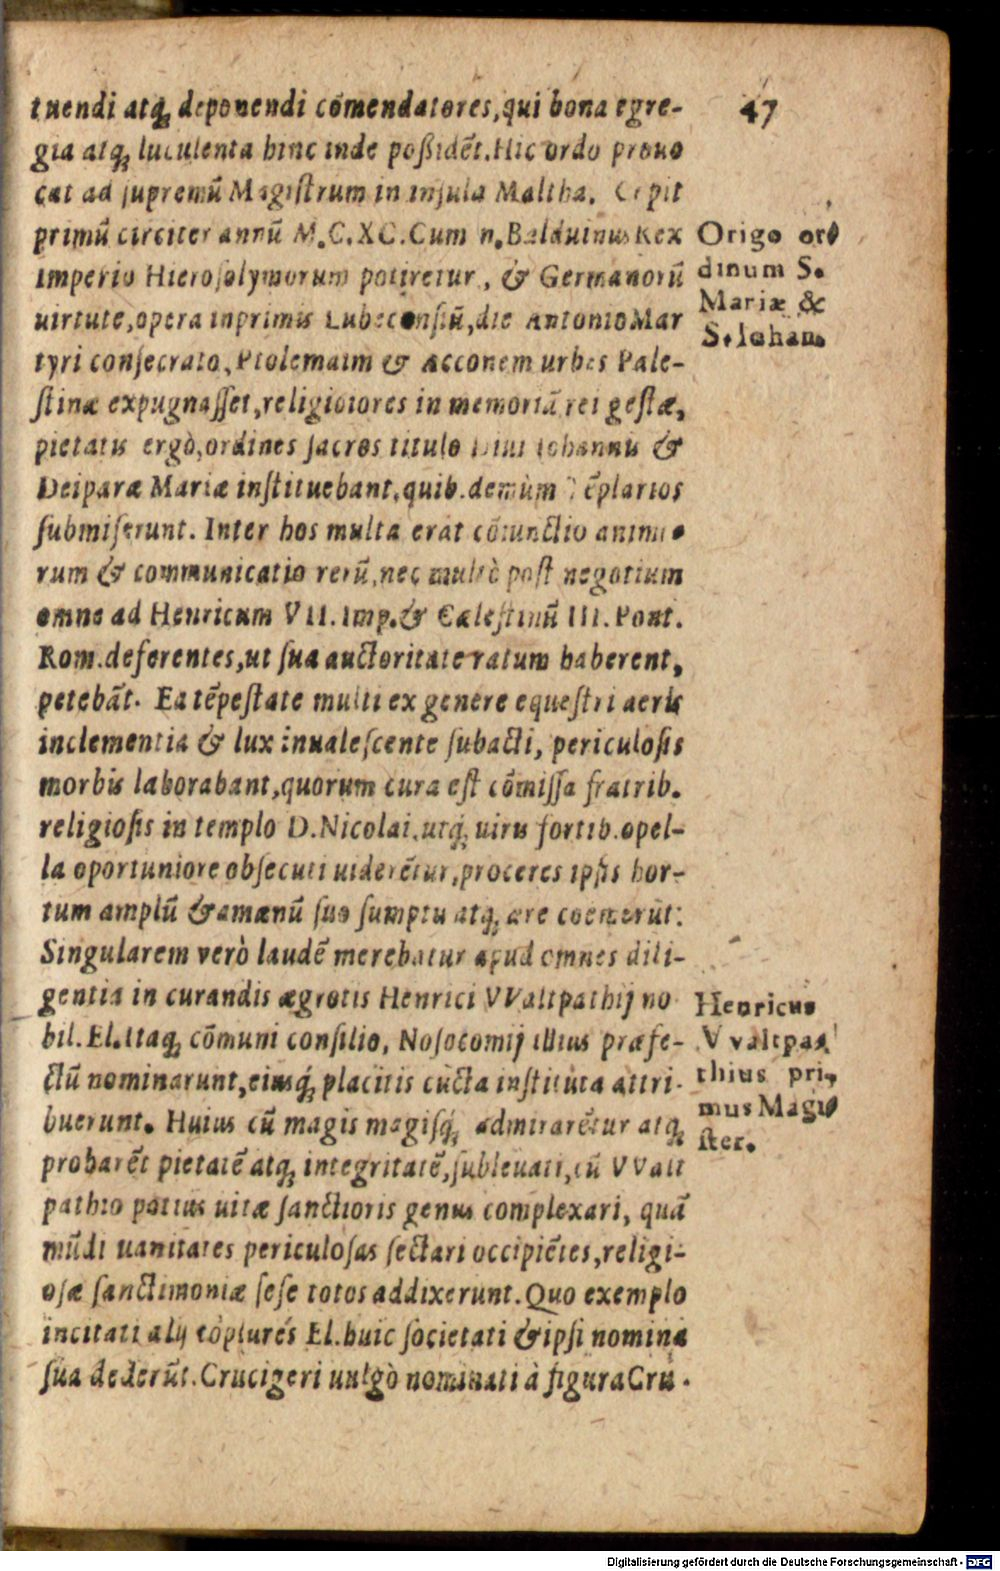 tuendi atq́; deponendi cõmendatores, qui bona egre-
47
gia atq́; luculenta hinc inde poßidẽt. Hic ordo prouo
cat ad supremũ Magistrum in insula Maltha. Cepit
primũ circiter annũ M.C.XC. Cum n. Balduinus Rex
imperio Hierosolymorum potiretur, & Germanorũ
uirtute, opera inprimis Lubecensiũ, die Antonio Mar
tyri consecrato, Ptolemaim & Acconem urbes Pale-
stinæ expugnasset, religiosiores in memoriã rei gestæ,
pietatis ergò, ordines sacros titulo Diui Iohannis &
Deiparæ Mariæ instituebant, quib. demùm Tẽplarios
submiserunt. Inter hos multa erat cõiunctio animo
rum & communicatio rerũ, nec multò post negotium
omne ad Henricum VII. Imp. & Cælestinũ III. Pont.
Rom. deferentes, ut sua auctoritate ratum haberent,
petebãt. Ea tẽpestate multi ex genere equestri aeris
inclementia & lux inualescente subacti, periculosis
morbis laborabant, quorum cura est cõmissa fratrib.
religiosis in templo D. Nicolai, utq́; uiris fortib. opel-
la oportuniore obsecuti uiderẽtur, proceres ipsis hor-
tum amplũ & amœnũ suo sumptu atq́; ære coemerũt:
Singularem verò laudẽ merebatur apud omnes dili-
gentia in curandis ægrotis Henrici VValtpathij no
bil. El. Itaq́; cõmuni consilio, Nosocomij illius præfe-
ctũ nominarunt, eiusq́; placitis cũcta instituta attri-
buerunt. Huius cũ magis magisq́; admirarẽtur atq́;
probarẽt pietatẽ atq́; integritatẽ, subleuati, cũ VValt
pathio potius uitæ sanctioris genus complexari, quã
mũdi uanitates periculosas sectari occipiẽtes, religi-
osæ sanctimoniæ sese totos addixerunt. Quo exemplo
incitati alij cõplures El. huic societati & ipsi nomina
sua dederũt. Crucigeri uulgò nominati à figura Cru-
Origo or-
dinum S.
Mariæ &
S. Iohan.
Henricus
VValtpa-
thius pri-
mus Magi-
ster.
Digitalisierung gefördert durch die Deutsche Forschungsgemeinschaft - DFG